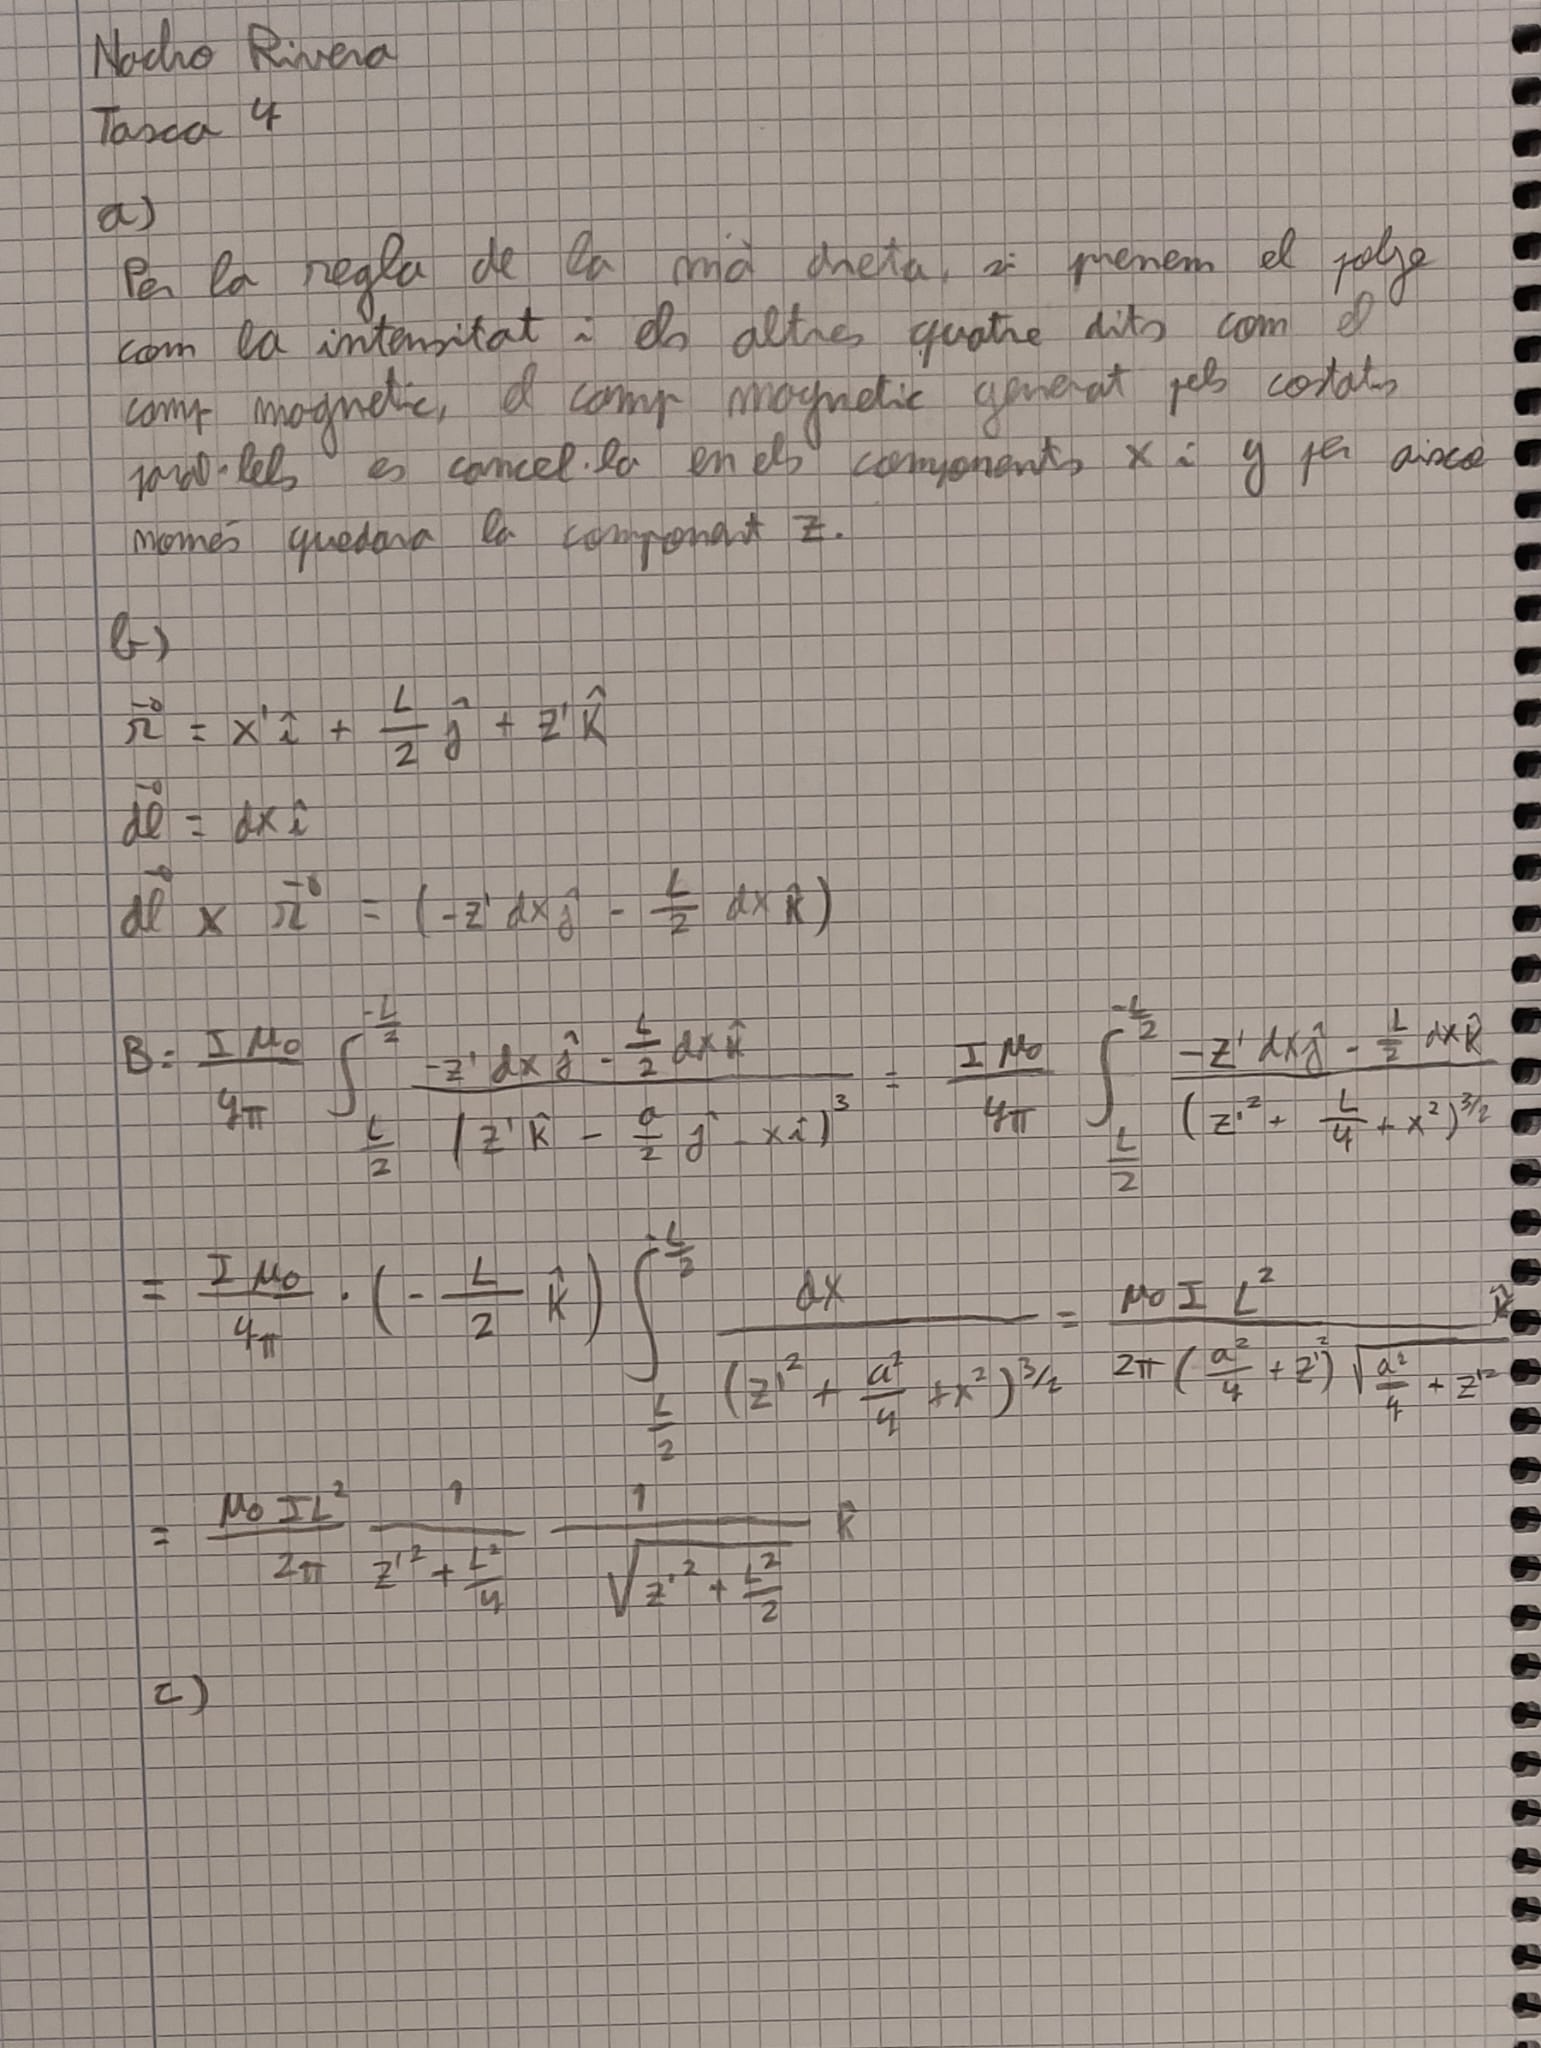 Nacho Rivera
Tasca 4
a)
Per la regla de la mà dreta, si prenem el polze
com la intensitat i els altres quatre dits com el
camp magnetic, el camp magnetic generat pels costats
paral·lels es cancel·la en els components x i y per aixo
només quedara la component z.
b)
r⃗ = x' î + L/2 ĵ + z' k̂
dl⃗ = dx î
dl⃗ x r⃗ = (-z' dx ĵ - L/2 dx k̂)
B = Iμ₀/4π ∫_{L/2}^{-L/2} (-z' dx ĵ - L/2 dx k̂)/(z' k̂ - a/2 ĵ - x î)³ = Iμ₀/4π ∫_{L/2}^{-L/2} (-z' dx ĵ - L/2 dx k̂)/(z'² + L/4 + x²)^{3/2}
= Iμ₀/4π · (- L/2 k̂) ∫_{L/2}^{-L/2} dx/(z'² + a²/4 + x²)^{3/2} = μ₀ I L²/(2π (a²/4 + z'²) √(a²/4 + z'²)) k̂
= μ₀ I L²/2π 1/(z'² + L²/4) 1/√(z'² + L²/2) k̂
c)